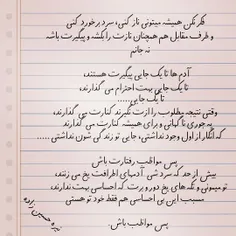 فکر نکن همیشه میتونی ناز کنی، سرد برخورد کنی
و طرف مقابل هم همچنان نازت را بکشه و پیگیرت باشه
نه جانم
آدم ها تا یک جایی پیگیرت هستند،
تا یک جایی بهت احترام می گذارند،
تا یک جایی.....
وقتی نتیجه مطلوب را ازت نگیرند کنارت می گذارند،
یه جوری ناگهانی و برای همیشه کنارت می گذارند
که انگار از اول وجود نداشتی، جایی تو زندگی شون نداشتی.....
پس مواظب رفتارت باش
بیش از حد که سرد شی آدمهای اطرافت یخ می زنند،
تو میمونی و تکه های یخ دور و برت که احساسی بهت ندارند،
مسبب این بی احساسی هم فقط خود تو هستی
پس مواظب باش.
حسین زاده